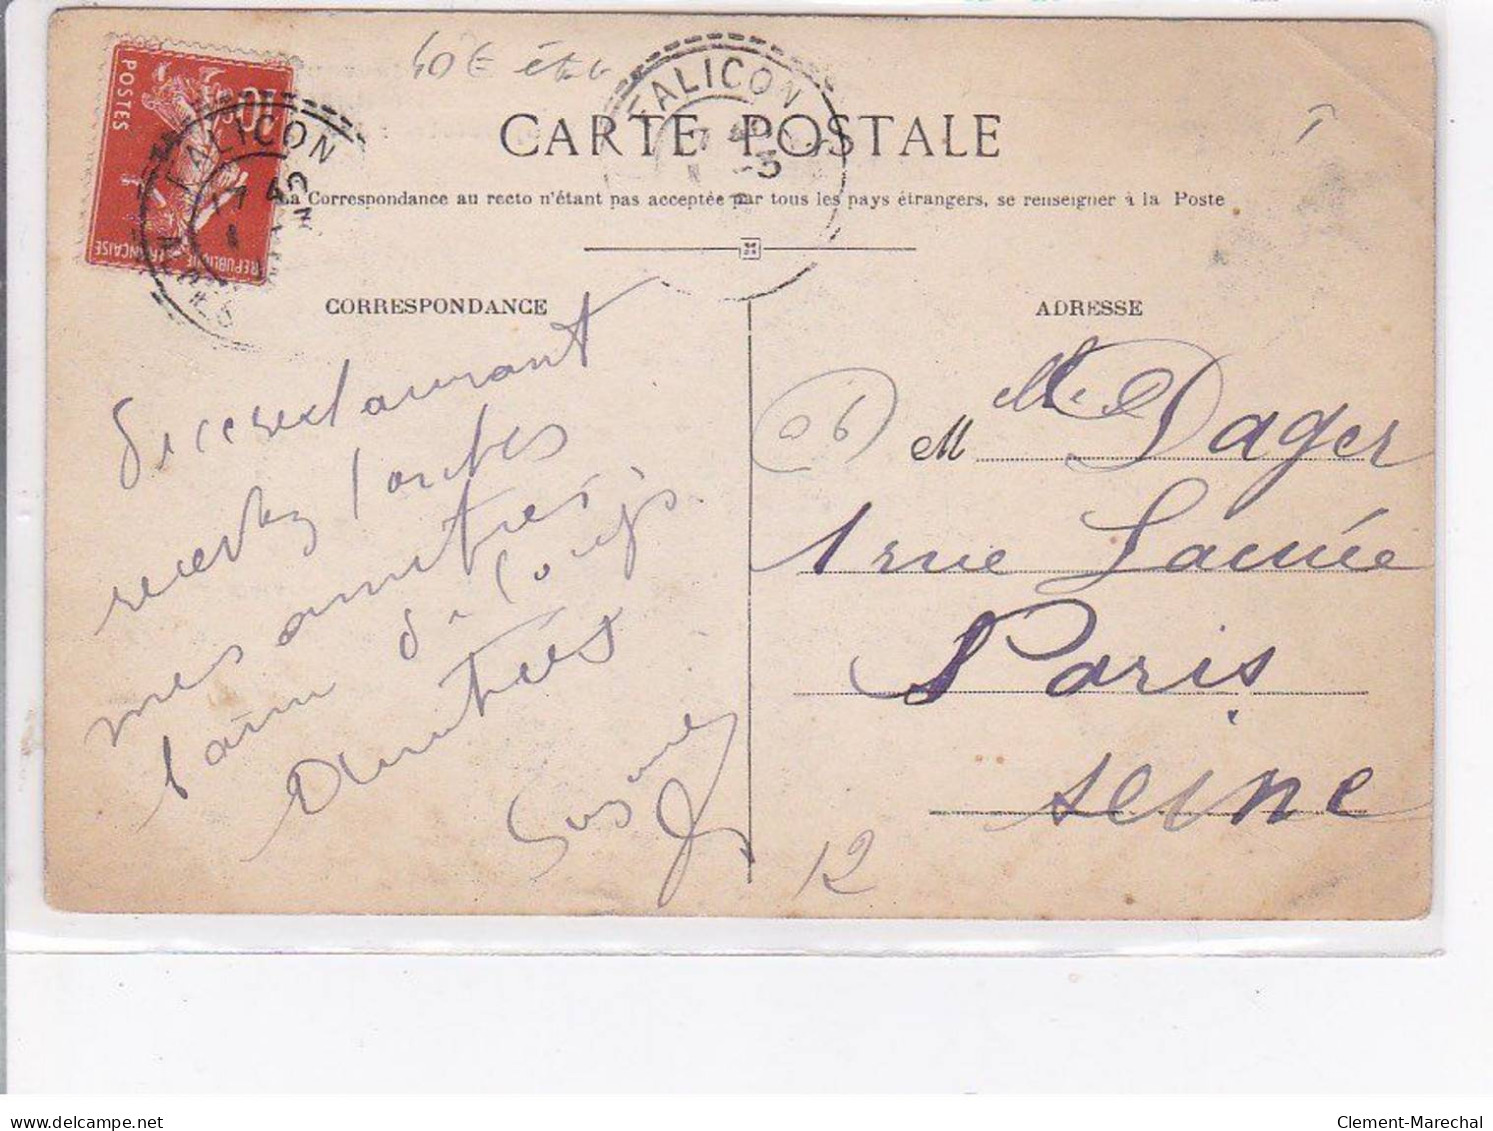 40 €
FALICON
17 40
-5
CARTE POSTALE
La Correspondance au recto n'étant pas acceptée par tous les pays étrangers, se renseigner à la Poste
POSTES
10
REPUBLIQUE FRANÇAISE
FALICON
17 40
CORRESPONDANCE
ADRESSE
recevez toutes
mes amitiés
Amitiés
Susanne
06
M Mlle Dager
1 rue Lacuée
Paris
Seine
12
delcampe.net
Clement-Marechal